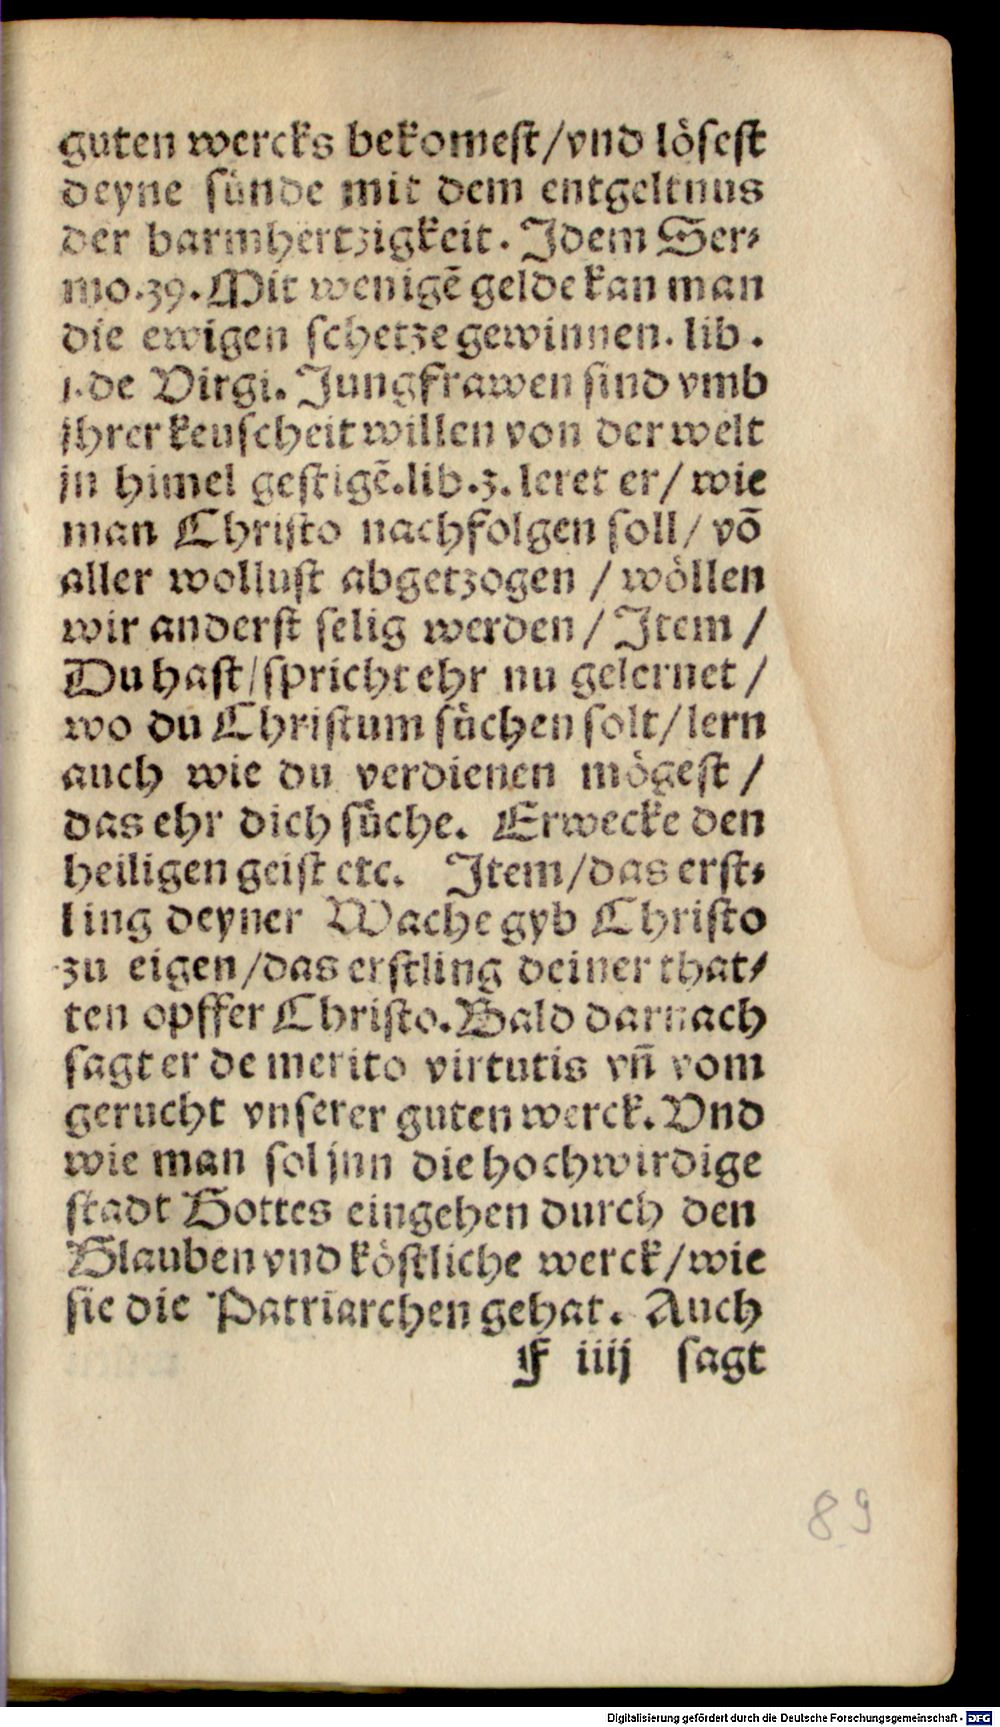 guten wercks bekomest/vnd lösest
deyne sünde mit dem entgeltnus
der barmhertzigkeit. Idem Ser⸗
mo.39. Mit wenigẽ gelde kan man
die ewigen schetze gewinnen. lib.
1.de Virgi. Jungfrawen sind vmb
jhrer keuscheit willen von der welt
jn himel gestigẽ.lib.3. leret er/ wie
man Christo nachfolgen soll/ võ
aller wollust abgetzogen / wöllen
wir anderst selig werden/ Item /
Du hast/spricht ehr nu gelernet/
wo du Christum süchen solt/lern
auch wie du verdienen mögest /
das ehr dich süche. Erwecke den
heiligen geist etc. Item/das erst⸗
ling deyner Wache gyb Christo
zu eigen/das erstling deiner that⸗
ten opffer Christo. Bald darnach
sagt er de merito virtutis vñ vom
gerucht vnserer guten werck. Vnd
wie man sol jnn die hochwirdige
stadt Gottes eingehen durch den
Glauben vnd köstliche werck/wie
sie die Patriarchen gehat. Auch
F iiij sagt
89
Digitalisierung gefördert durch die Deutsche Forschungsgemeinschaft - DFG